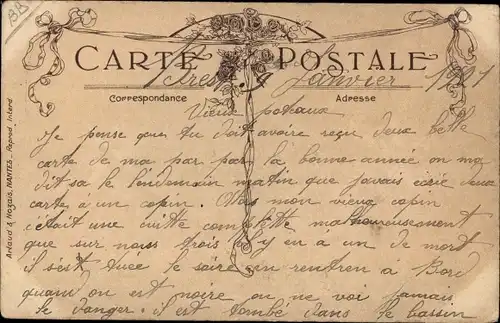 BB
CARTE POSTALE
Brest 4 Janvier 1921
Correspondance
Adresse
Artaud & Nozais, NANTES. - Reprod. Interd.
Vieux poteaux
Je pense que tu doit avoire reçu deux belle
carte de ma par par la bonne année on ma
dit sa le lendemain matin que javais écrie deux
carte à un copin. Vas mon vieux copin
cétait une cuitte complette malheureusement
que sur nous trois il y en a un de mort
il s'ést tuée le soire en rentren à Bord
quand on est noire on ne voi jamais
le danger. il est tombé dans le bassin